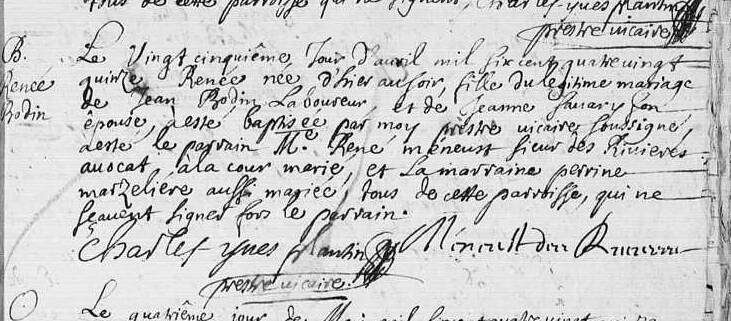 tous de cette parroisse qui ne signent, Charles yves Mantin
prestre vicaire
B.
Renée
Bodin
Le vingt cinquiême Jour d'avril mil six cent quatre vingt
quinze Renée née d'hier au soir, fille du legitime mariage
de Jean Bodin Laboureur, et de Jeanne Savary son
épouse, a esté baptisée par moy prestre vicaire soussigné,
a esté le parrain Me. René meneust sieur des Rivieres
avocat à la cour marié, et la marraine perrine
marzeliere aussi mariée, tous de cette parroisse, qui ne
sçavent signer fors le parrain.
Charles yves Mantin Meneust des Rivieres
prestre vicaire
Le quatriême jour de Mai mil six cent quatre vingt